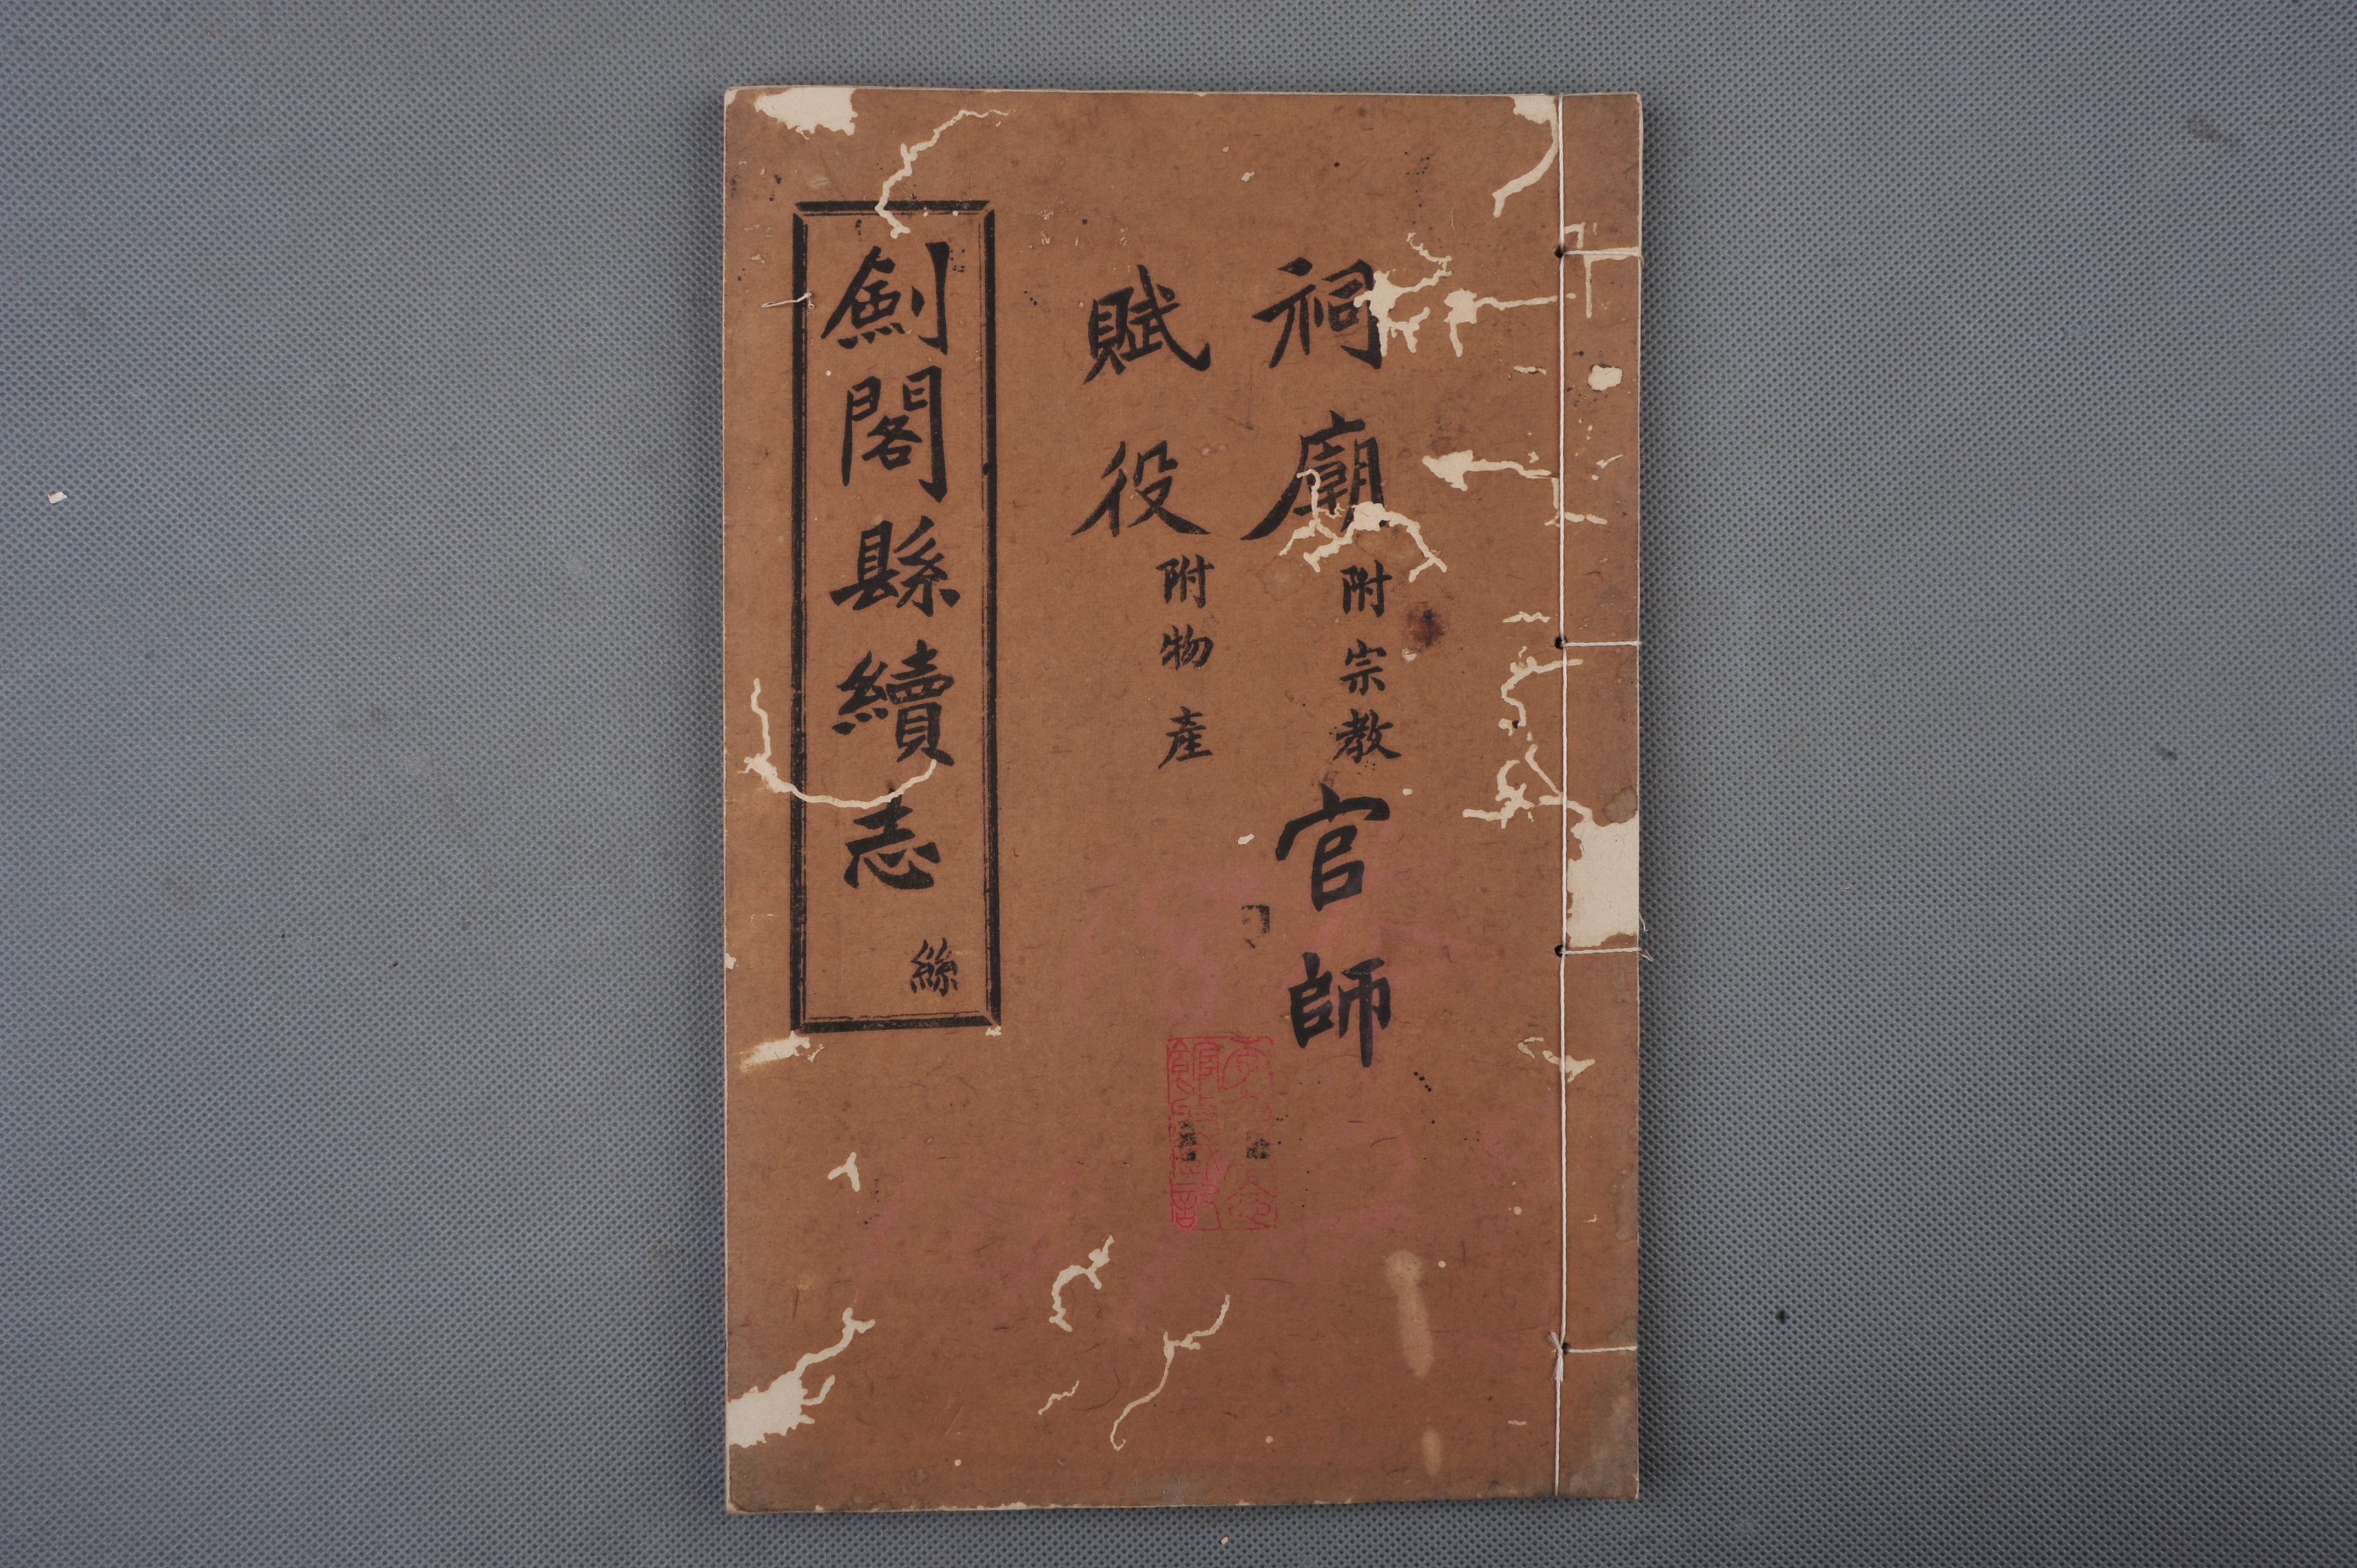 祠廟附宗教官師
賦役附物產
劍閣縣續志絲